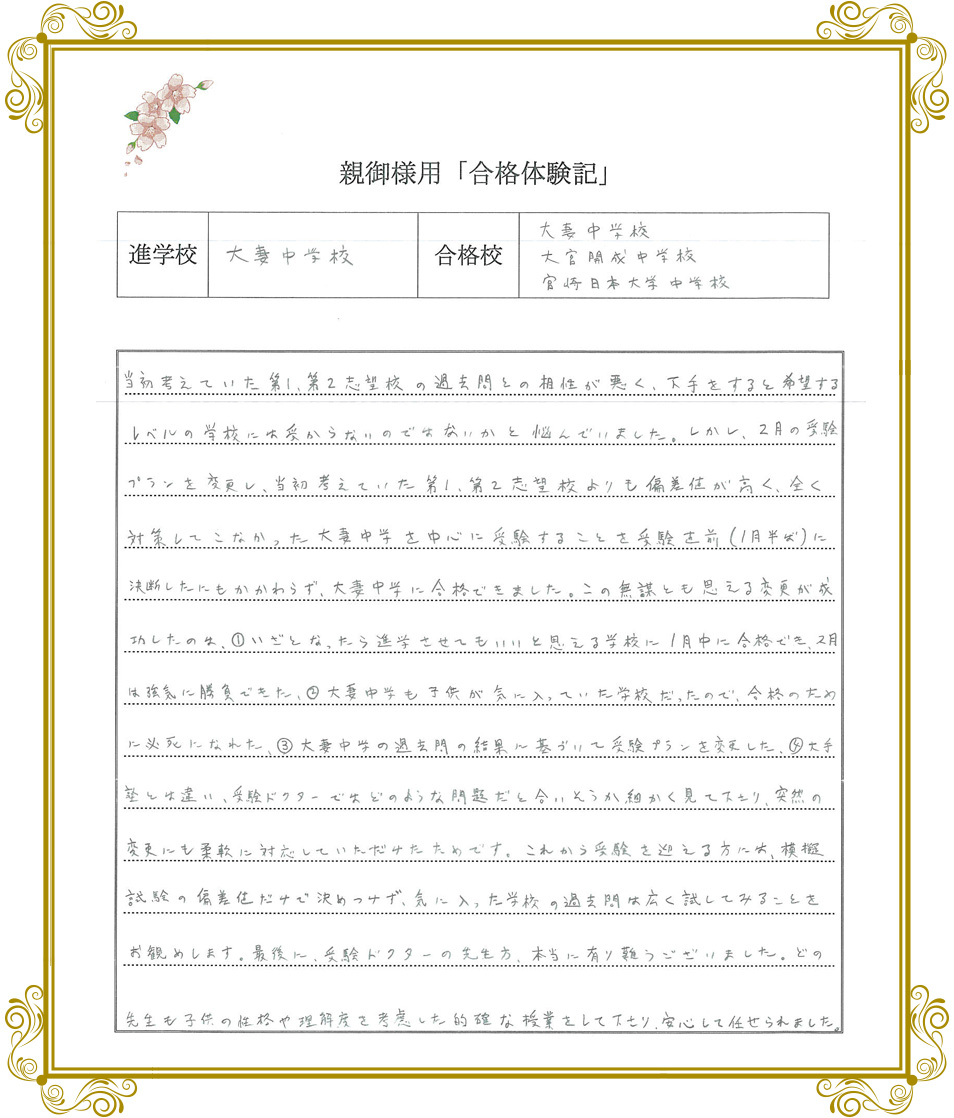 親御様用「合格体験記」
進学校
大妻中学校
合格校
大妻中学校
大宮開成中学校
宮崎日本大学中学校
当初考えていた第1、第2志望校の過去問との相性が悪く、下手をすると希望する
レベルの学校には受からないのではないかと悩んでいました。しかし、2月の受験
プランを変更し、当初考えていた第1、第2志望校よりも偏差値が高く、全く
対策してこなかった大妻中学を中心に受験することを受験直前(1月半ば)に
決断したにもかかわらず、大妻中学に合格できました。この無謀とも思える変更が成
功したのは、①いざとなったら進学させてもいいと思える学校に1月中に合格でき、2月
は強気に勝負できた、②大妻中学も子供が気に入っていた学校だったので、合格のため
に必死になれた、③大妻中学の過去問の結果に基づいて受験プランを変更した、④大手
塾とは違い、受験ドクターではどのような問題だと合いそうか細かく見て下さり、突然の
変更にも柔軟に対応していただけたためです。これから受験を迎える方には、模擬
試験の偏差値だけで決めつけず、気に入った学校の過去問は広く試してみることを
お観めします。最後に、受験ドクターの先生方、本当に有り難うございました。どの
先生も子供の性格や理解度を考慮した的確な授業をして下さり、安心して任せられました。